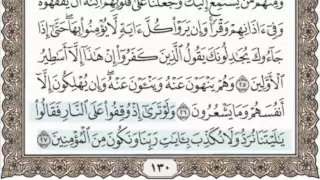 وَمِنْهُم مَّن يَسْتَمِعُ إِلَيْكَ وَجَعَلْنَا عَلَىٰ قُلُوبِهِمْ أَكِنَّةً أَن يَفْقَهُوهُ
وَفِىٓ ءَاذَانِهِمْ وَقْرًا ۚ وَإِن يَرَوْا۟ كُلَّ ءَايَةٍ لَّا يُؤْمِنُوا۟ بِهَا ۚ حَتَّىٰٓ إِذَا
جَآءُوكَ يُجَٰدِلُونَكَ يَقُولُ ٱلَّذِينَ كَفَرُوٓا۟ إِنْ هَٰذَآ إِلَّآ أَسَٰطِيرُ
ٱلْأَوَّلِينَ ٢٥ وَهُمْ يَنْهَوْنَ عَنْهُ وَيَنْـَٔوْنَ عَنْهُ ۖ وَإِن يُهْلِكُونَ إِلَّآ
أَنفُسَهُمْ وَمَا يَشْعُرُونَ ٢٦ وَلَوْ تَرَىٰٓ إِذْ وُقِفُوا۟ عَلَى ٱلنَّارِ فَقَالُوا۟
يَٰلَيْتَنَا نُرَدُّ وَلَا نُكَذِّبَ بِـَٔايَٰتِ رَبِّنَا وَنَكُونَ مِنَ ٱلْمُؤْمِنِينَ ٢٧
١٣٠